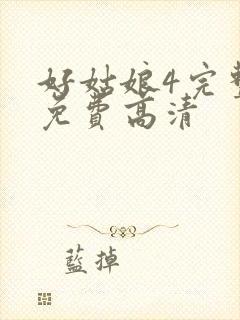 好姑娘4完整
免费高清
藍掉